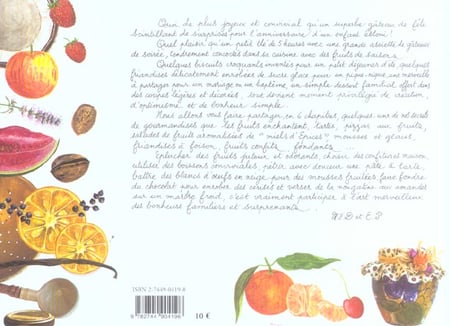 Quoi de plus joyeux et convivial qu'un superbe gâteau de fête
scintillant de surprises pour l'anniversaire d'un enfant ébloui !
Quel plaisir qu'un petit thé de 5 heures avec une grande assiette de gâteaux
de soirée, tendrement concoctés dans sa cuisine avec des fruits de saisons.
Quelques biscuits croquants inventés pour un petit déjeuner d'été, quelques
friandises délicatement enrobées de sucre glace pour un pique-nique, une merveille
à partager pour un mariage ou un baptême, un simple dessert familial offert dans
des coupes légères et décorées, tout devient moment privilégié de création
d'optimisme et de bonheur simple.
Nous allons vous faire partager, en 6 chapitres, quelques uns de nos secrets
de gourmandises que les fruits enchantent, tartes, pizzas aux fruits,
salades de fruits aromatisées de "miels d'Épices" mousses et glaces,
friandises à foison, fruits confits... fondants...
Éplucher des fruits juteux et odorants choisir des confitures maison,
utiliser des boissons conviviales, pétrir avec douceur une pâte à tarte,
battre des blancs d'œufs en neige pour des mousses fruitées faire fondre
du chocolat pour enrober des cerises et verser de la nougatine aux amandes
sur un marbre froid, c'est vraiment participer à l'art merveilleux
des bonheurs familiers et surprenants...
ISBN 2-7449-0419-8
9 782744 904196
10 €